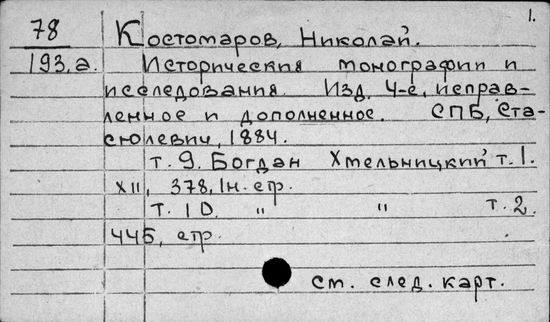 1.
78 Костомаров, Николай.
193.а. Исторические монографии и
исследования. Изд. 4-е, исправ-
ленное и дополненное. СПБ, Ста-
сюлевич, 1884.
т. 9. Богдан Хмельницкий т. 1.
XII, 378, 1н. стр.
т. 10. " " т. 2.
445, стр.
см. след. карт.